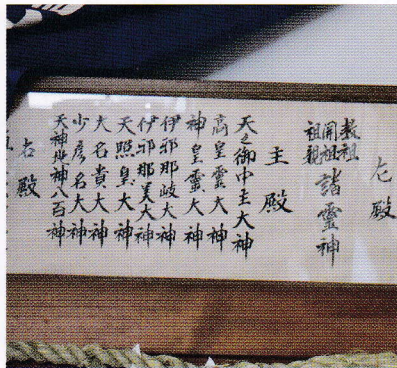 左殿
教祖
開祖
祖親
諸靈神
主殿
天之御中主大神
高皇靈大神
神皇靈大神
伊邪那岐大神
伊邪那美大神
天照皇大神
大名貴大神
少彦名大神
天神地神八百神
右殿